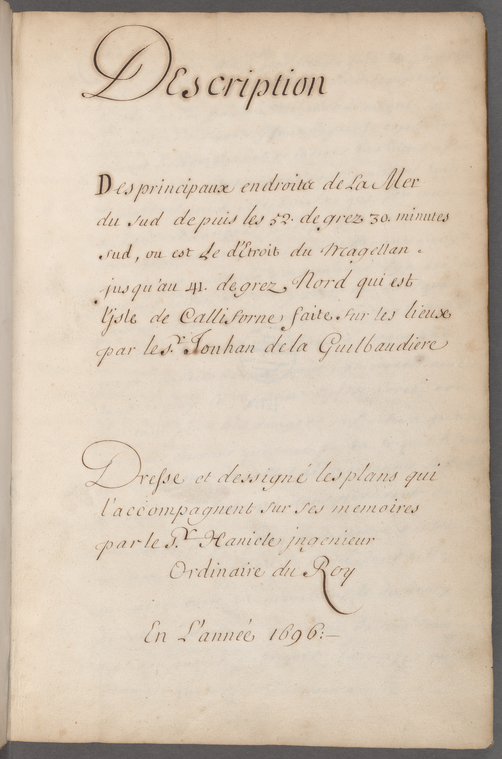 Description
Des principaux endroits de La Mer
du Sud depuis les 52. degrez 30. minutes
sud, ou est Le d'Etroit du Magellan.
jusqu'au 41. degrez Nord qui est
l'jsle de Californe, faite sur les lieux
par le Sr. Jouhan de la Guilbaudiere
Dresse et dessigné les plans qui
l'accompagnent sur ses memoires
par le Sr. Hanicle jngenieur
Ordinaire du Roy
En L'année 1696:—